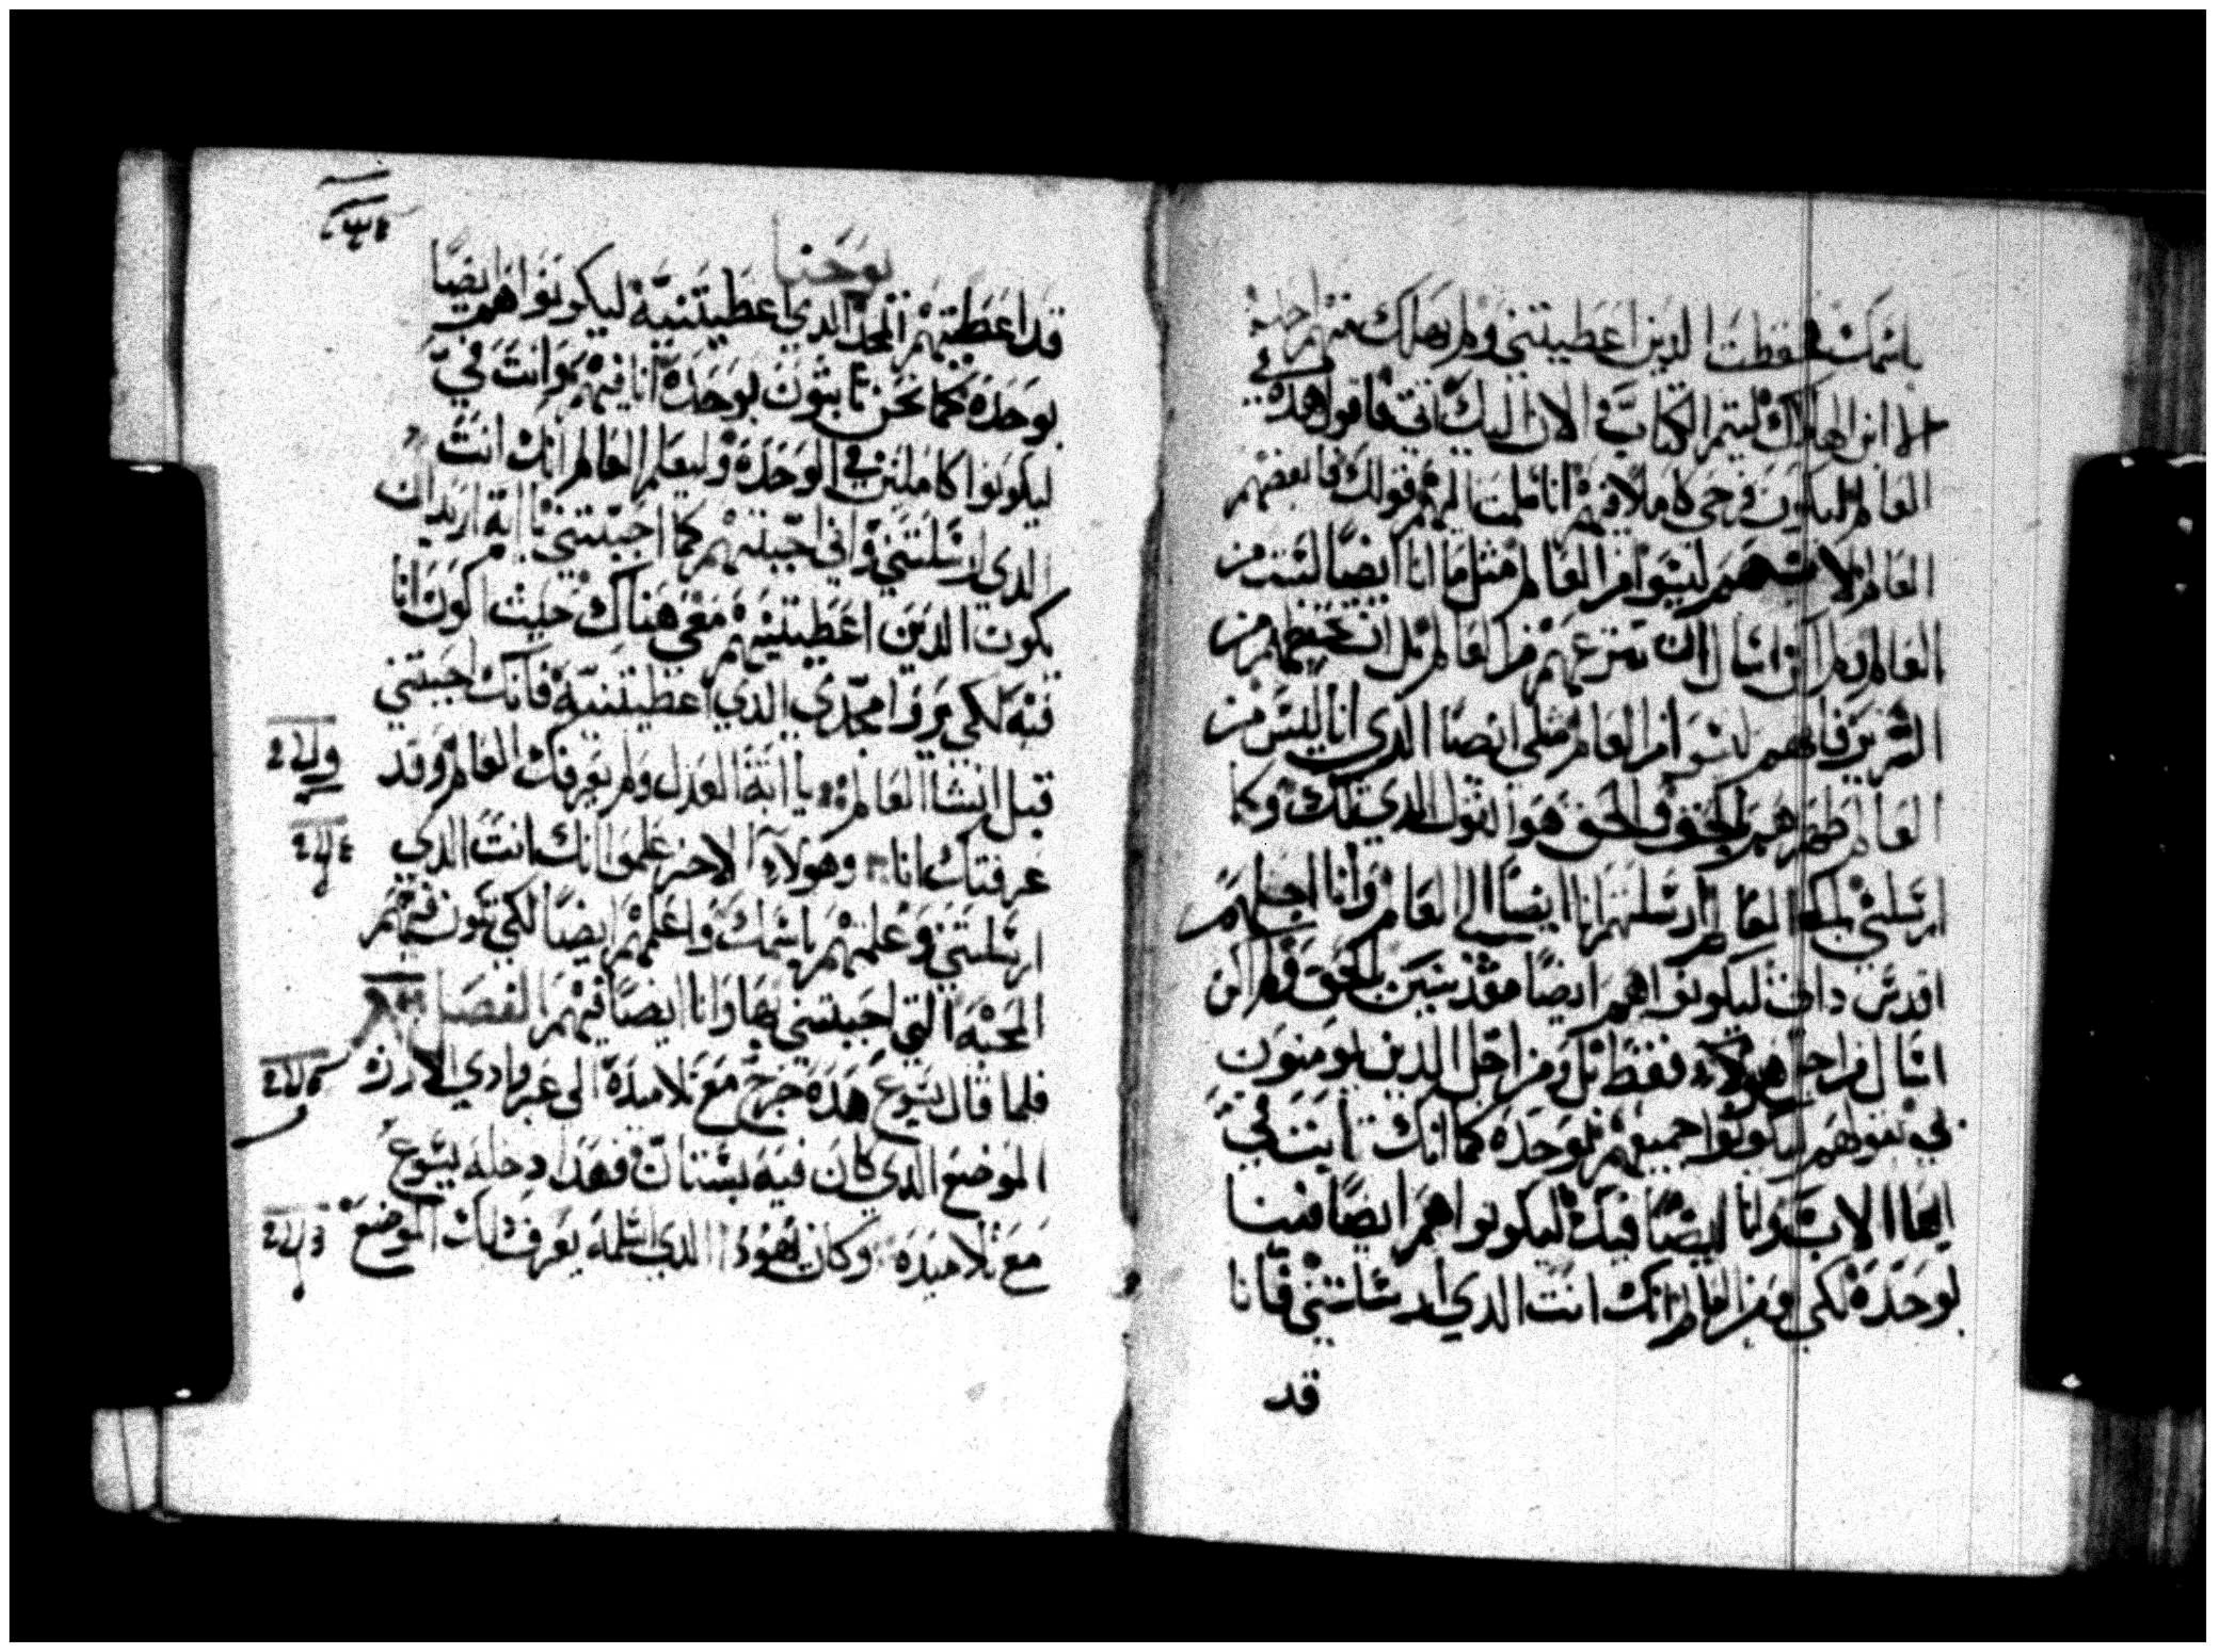 باسمك حفظت الدين اعطيتني ولم يهلك منهم احد
الا ابن الهلاك ليتم الكتاب والان اليك اتي فاقول هده في
العالم ليكون فرحي كاملا فيهم انا قلت لهم قولك فابغضهم
العالم لانهم ليسوا من العالم مثل ما انا ايضا لست من
العالم ولم اكن اسال ان تنزعهم من العالم بل ان تحفظهم من
الشرير فانهم ليسوا من العالم مثلي ايضا الدي انا ليس من
العالم طهرهم بالحق والحق هو القول الدي لك وكما
ارسلتني للعالم ارسلتهم انا ايضا الى العالم وانا اجلهم
اقدس داتي ليكونوا هم ايضا مقدسين بالحق ولم اكن
اسال من اجل هولاء فقط بل ومن اجل الدين يومنون
بي بقولهم ليكونوا جميعهم بوحده كما انك ثابت في
ايها الاب وانا ايضا فيك ليكونوا هم ايضا فينا
بوحده لكي يومن العالم انك انت الدي ارسلتني فانا
قد
يوحنا
قد اعطيتهم المجد الدي اعطيتنيه ليكونوا هم ايضا
بوحده كما نحن ثابتون بوحده انا فيهم وانت في
ليكونوا كاملين في الوحده وليعلم العالم انك انت
الدي ارسلتني واني احببتهم كما احببتني يا ابه اريد ان
يكون الدين اعطيتنيهم معي هناك حيث اكون انا
فيه لكي يروا مجدي الدي اعطيتنيه فانك احببتني
قبل انشا العالم يا ابه العدل ولم يعرفك العالم وقد
عرفتك انا وهولاء الاخر علموا انك انت الدي
ارسلتني وعلمتهم باسمك واعلمهم ايضا لكي تكون فيهم
المحبه التي احببتني بها وانا ايضا فيهم الفصل
فلما قال يسوع هده خرج مع تلاميده الى عبر وادي الارز
الموضع الدي كان فيه بستان فهدا دخله يسوع
مع تلاميده وكان يهودا الدي اسلمه يعرف دلك الموضع